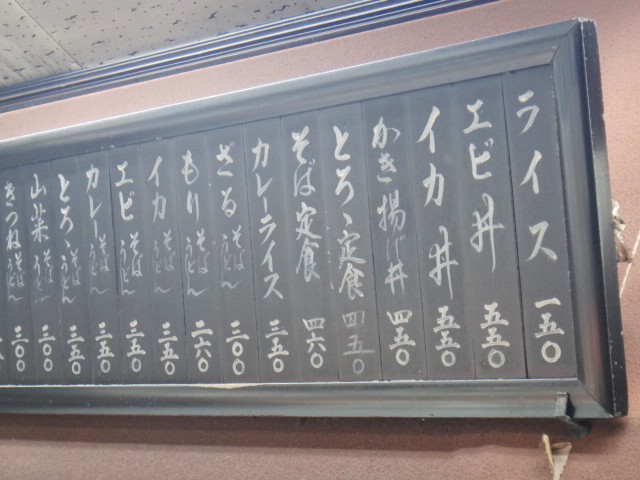 ライス 一五〇
エビ丼 五五〇
イカ丼 五五〇
かき揚げ丼 四五〇
とろゝ定食 四五〇
そば定食 四六〇
カレーライス 三五〇
ざる そば うどん 三〇〇
もり そば うどん 二六〇
イカ そば うどん 三五〇
エビ そば うどん 三五〇
カレー そば うどん 三五〇
とろゝ そば うどん 三五〇
山菜 そば うどん 三〇〇
きつね そば うどん 三〇〇